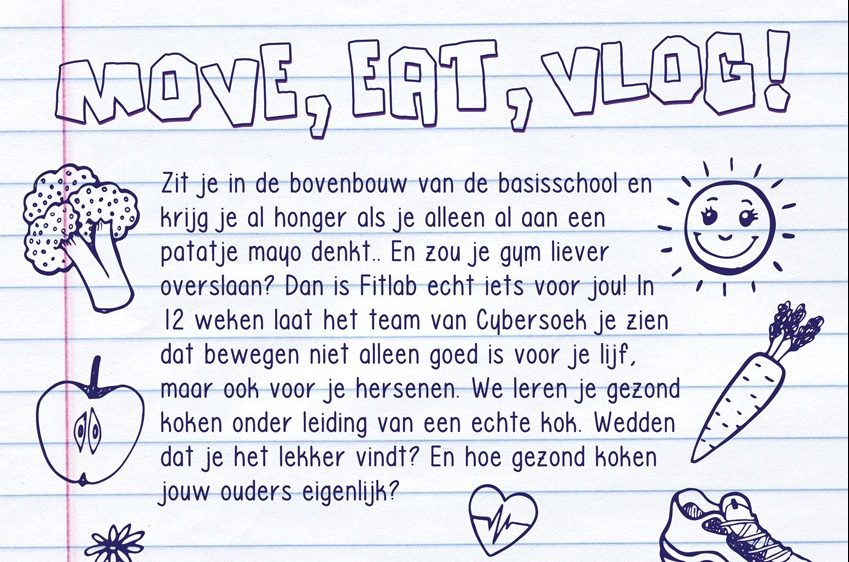 MOVE, EAT, VLOG!
Zit je in de bovenbouw van de basisschool en
krijg je al honger als je alleen al aan een
patatje mayo denkt.. En zou je gym liever
overslaan? Dan is Fitlab echt iets voor jou! In
12 weken laat het team van Cybersoek je zien
dat bewegen niet alleen goed is voor je lijf,
maar ook voor je hersenen. We leren je gezond
koken onder leiding van een echte kok. Wedden
dat je het lekker vindt? En hoe gezond koken
jouw ouders eigenlijk?